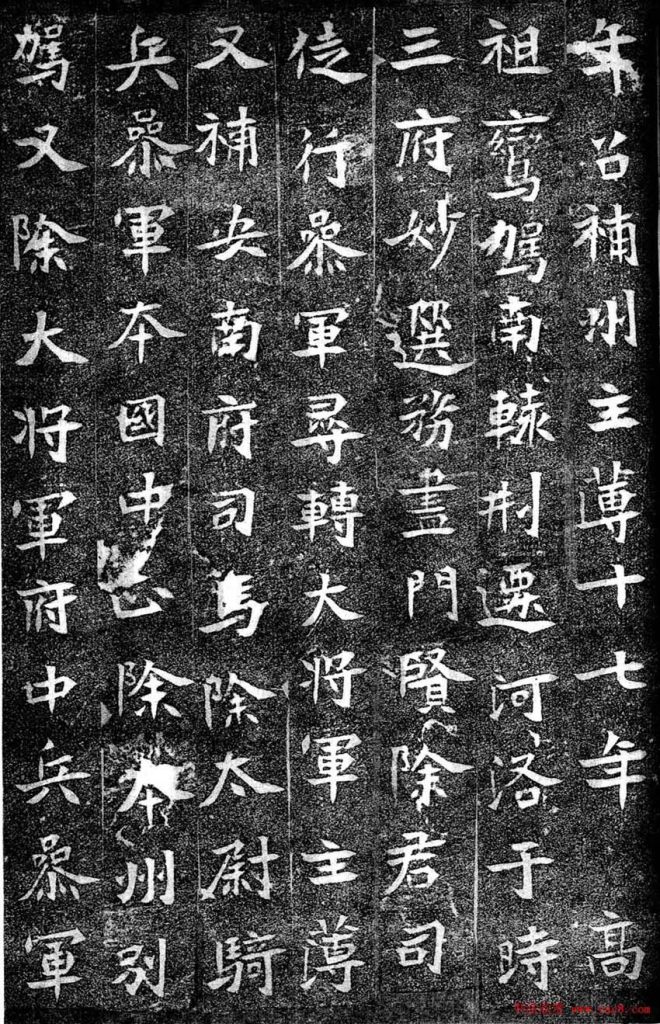 年召補州主薄十七年 高
祖鸞駕南轅刱遷河洛于時
三府妙選務盡門賢除君司
徒行參軍尋轉大將軍主薄
又補央南府司馬除太尉騎
兵參軍本國中正除本州別
駕又除大將軍府中兵參軍
书法欣赏 www.yac8.com